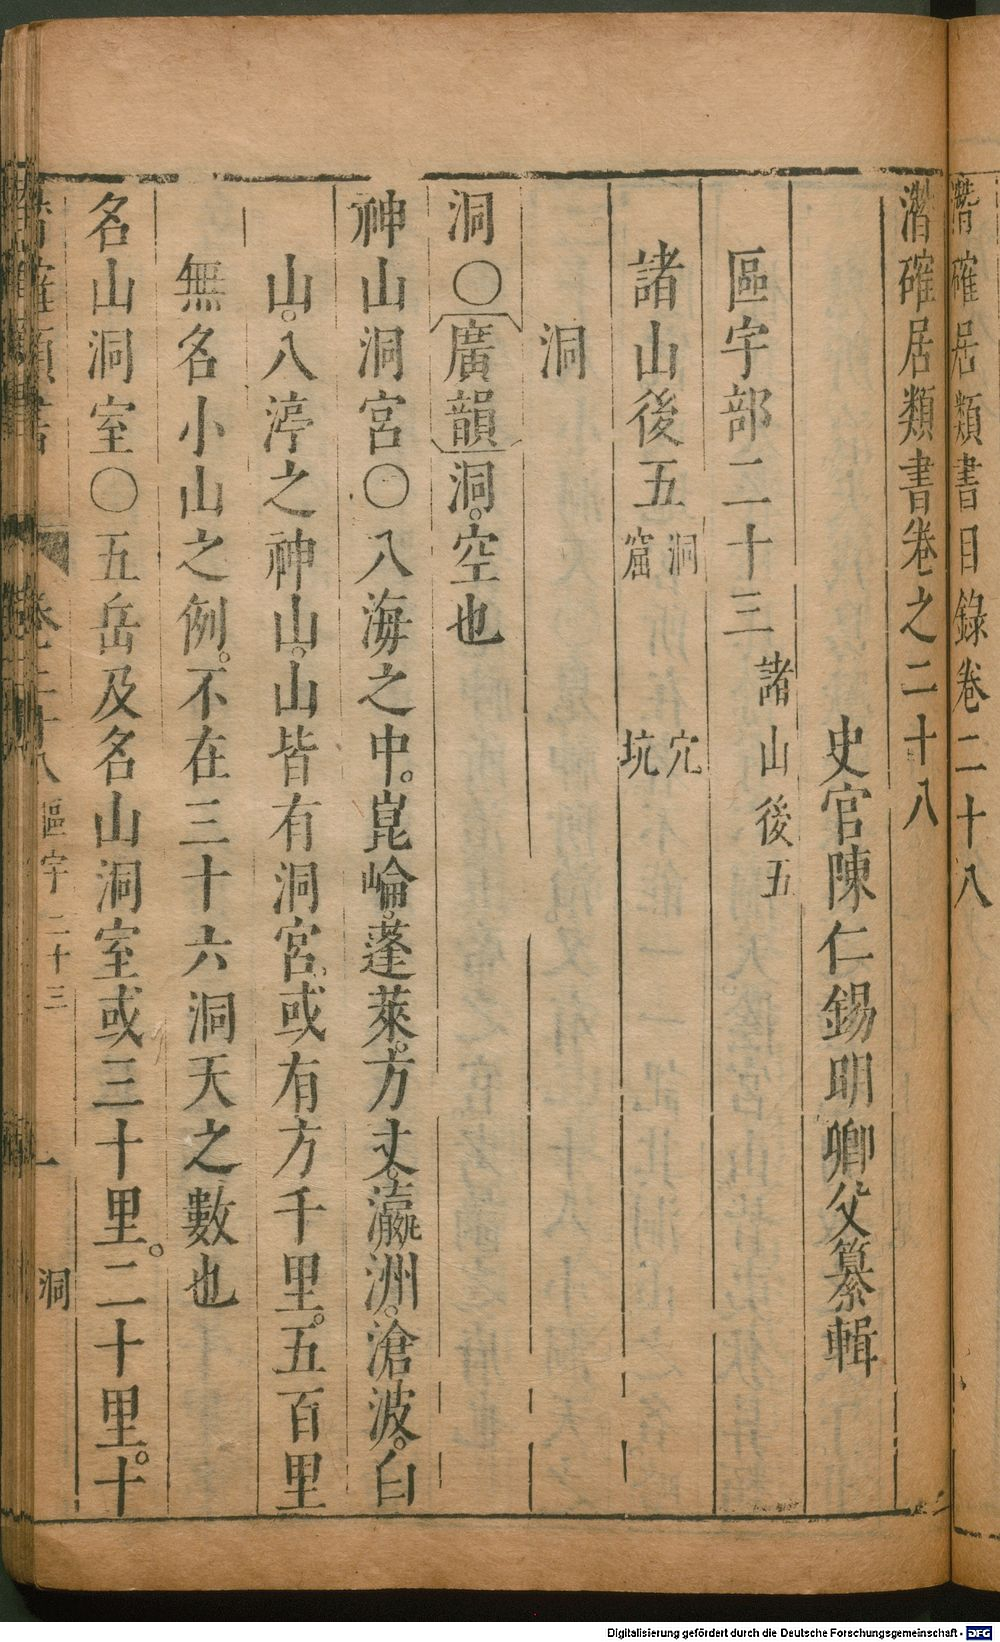 潛確居類書目錄卷二十八
潛確居類書卷之二十八
史官陳仁錫明卿父纂輯
區宇部二十三 諸山後五
諸山後五 洞 穴 窟 坑
洞
洞〇廣韻洞。空也
神山洞宮〇八海之中。崑崙。蓬萊。方丈。瀛洲。滄波。白
山。八渟之神山。山皆有洞宮。或有方千里。五百里
無名小山之例。不在三十六洞天之數也
名山洞室〇五岳及名山洞室或三十里。二十里。十
潛確類書 卷二十八 區宇二十三 一 洞
Digitalisierung gefördert durch die Deutsche Forschungsgemeinschaft - DFG